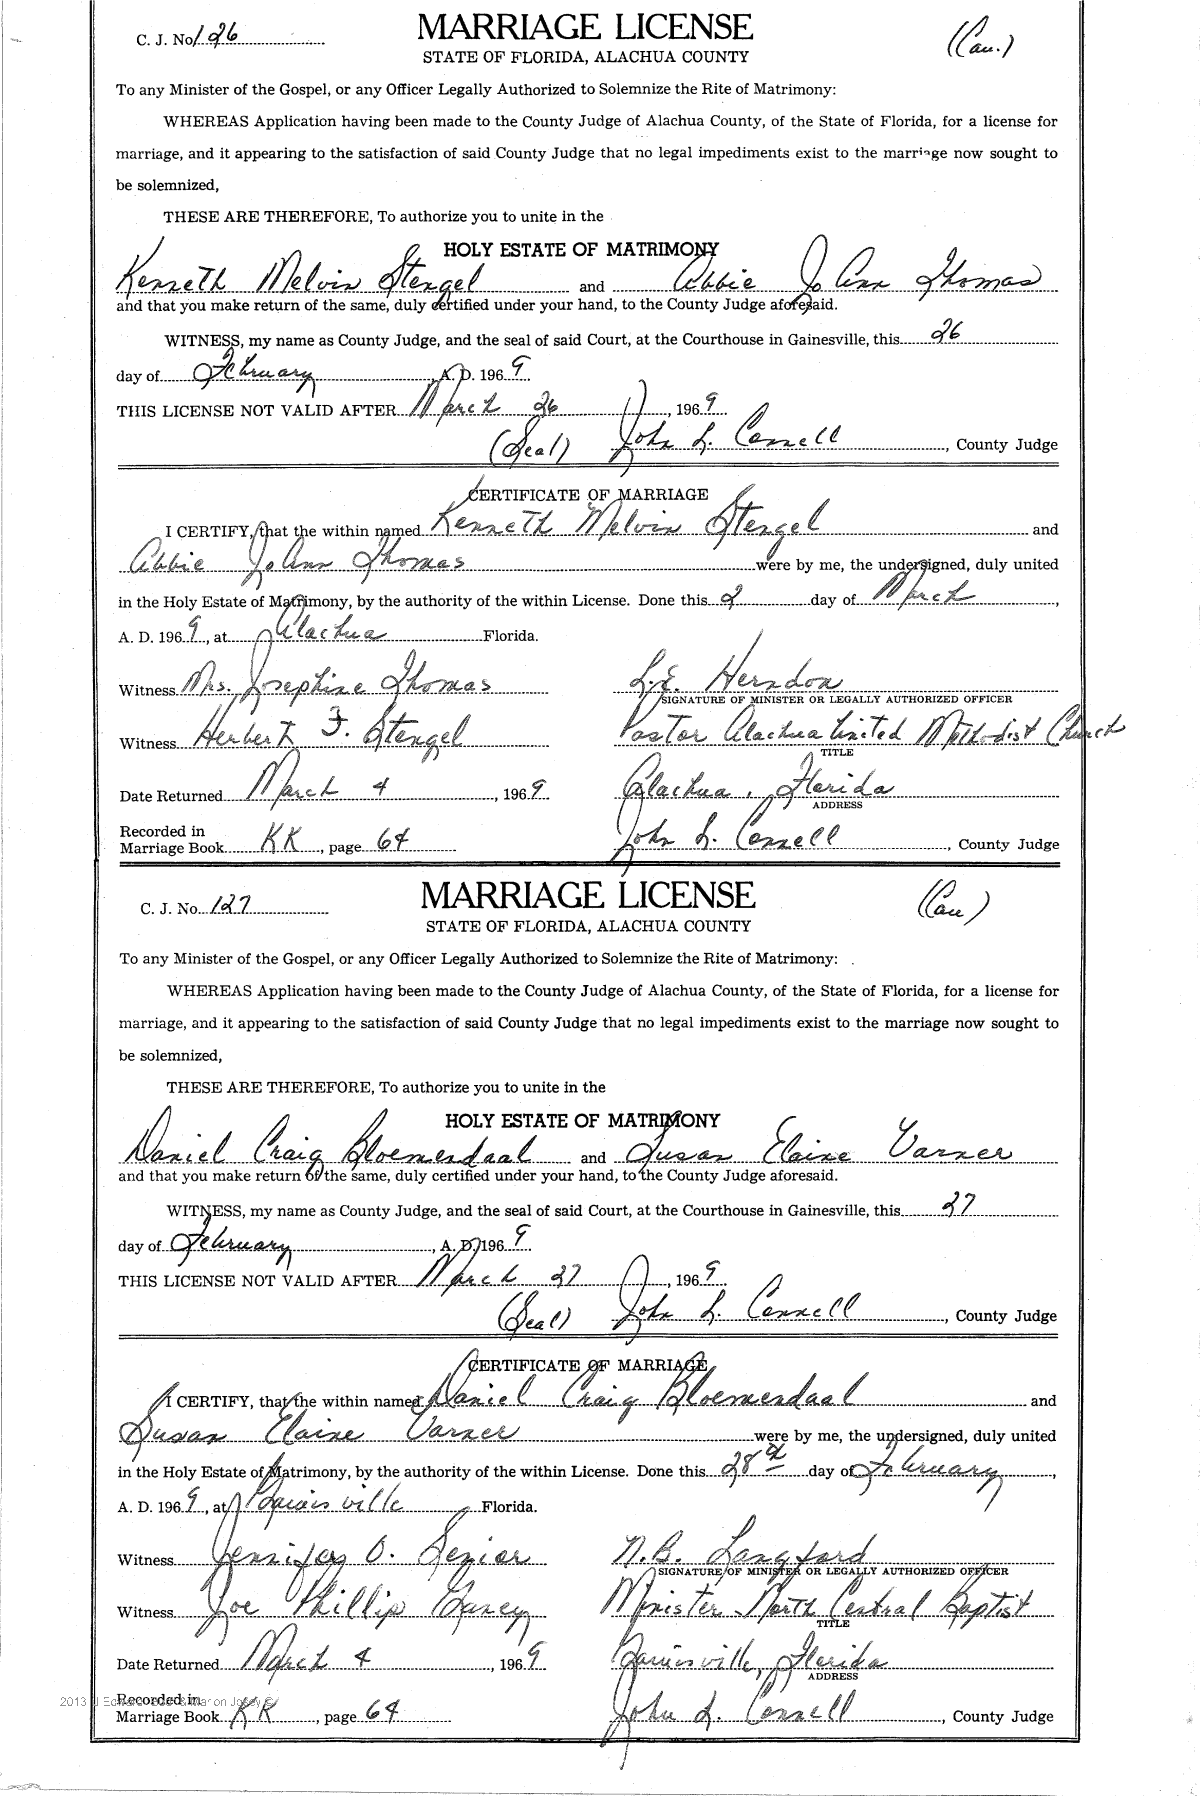 C. J. No. 126 MARRIAGE LICENSE (Cau.)
STATE OF FLORIDA, ALACHUA COUNTY
To any Minister of the Gospel, or any Officer Legally Authorized to Solemnize the Rite of Matrimony:
WHEREAS Application having been made to the County Judge of Alachua County, of the State of Florida, for a license for
marriage, and it appearing to the satisfaction of said County Judge that no legal impediments exist to the marriage now sought to
be solemnized,
THESE ARE THEREFORE, To authorize you to unite in the
HOLY ESTATE OF MATRIMONY
Kenneth Melvin Stengel and Abbie Jo Ann Thomas
and that you make return of the same, duly certified under your hand, to the County Judge aforesaid.
WITNESS, my name as County Judge, and the seal of said Court, at the Courthouse in Gainesville, this 26
day of February, A. D. 1969.
THIS LICENSE NOT VALID AFTER March 26, 1969
(Seal) John L. Connell, County Judge
CERTIFICATE OF MARRIAGE
I CERTIFY, that the within named Kenneth Melvin Stengel and
Abbie JoAnn Thomas were by me, the undersigned, duly united
in the Holy Estate of Matrimony, by the authority of the within License. Done this 2 day of March,
A. D. 1969, at Alachua Florida.
Witness Mrs. Josephine Thomas L. E. Herndon
SIGNATURE OF MINISTER OR LEGALLY AUTHORIZED OFFICER
Witness Herbert F. Stengel Pastor Alachua United Methodist Church
TITLE
Date Returned March 4, 1969 Alachua, Florida
ADDRESS
Recorded in
Marriage Book KK, page 64 John L. Connell, County Judge
C. J. No. 127 MARRIAGE LICENSE (Cau)
STATE OF FLORIDA, ALACHUA COUNTY
To any Minister of the Gospel, or any Officer Legally Authorized to Solemnize the Rite of Matrimony:
WHEREAS Application having been made to the County Judge of Alachua County, of the State of Florida, for a license for
marriage, and it appearing to the satisfaction of said County Judge that no legal impediments exist to the marriage now sought to
be solemnized,
THESE ARE THEREFORE, To authorize you to unite in the
HOLY ESTATE OF MATRIMONY
Daniel Craig Bloemendaal and Susan Elaine Varner
and that you make return of the same, duly certified under your hand, to the County Judge aforesaid.
WITNESS, my name as County Judge, and the seal of said Court, at the Courthouse in Gainesville, this 27
day of February, A. D. 1969.
THIS LICENSE NOT VALID AFTER March 27, 1969
(Seal) John L. Connell, County Judge
CERTIFICATE OF MARRIAGE
I CERTIFY, that the within named Daniel Craig Bloemendaal and
Susan Elaine Varner were by me, the undersigned, duly united
in the Holy Estate of Matrimony, by the authority of the within License. Done this 28th day of February,
A. D. 1969, at Gainesville Florida.
Witness Jennifer O. Senior N. B. Langford
SIGNATURE OF MINISTER OR LEGALLY AUTHORIZED OFFICER
Witness Joe Phillip Minister North Central Baptist
TITLE
Date Returned March 4, 1969 Gainesville, Florida
ADDRESS
Recorded in
Marriage Book KK, page 64 John L. Connell, County Judge
2013